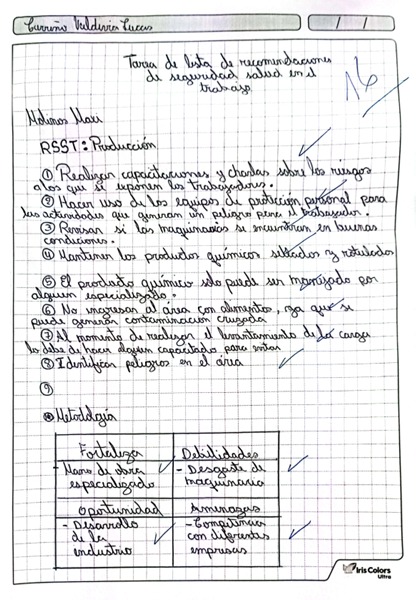 Carreño Valderria Lucas
/ /
Tarea de lista de recomendaciones
de seguridad salud en el
trabajo
16
Molinos Mari
RSST: Producción
① Realizar capacitaciones y charlas sobre los riesgos
a los que se exponen los trabajadores.
② Hacer uso de los equipos de protección personal para
las actividades que generan un peligro para el trabajador.
③ Revisar si las maquinarias se encuentran en buenas
condiciones.
④ Mantener los productos químicos sellados y rotulados
⑤ El producto químico solo puede ser manejado por
alguien especializado.
⑥ No ingresar al área con alimentos, ya que se
puede generar contaminación cruzada
⑦ Al momento de realizar el levantamiento de la carga
lo debe de hacer alguien capacitado para evitar
⑧ Identificar peligros en el área
⑨
Metodología
Fortaleza Debilidades
- Mano de obra - Desgaste de
especializado maquinaria
Oportunidad Aminazas
- Desarrollo - Competencia
de la con diferentes
industria empresas
Iris Colors
Ultra